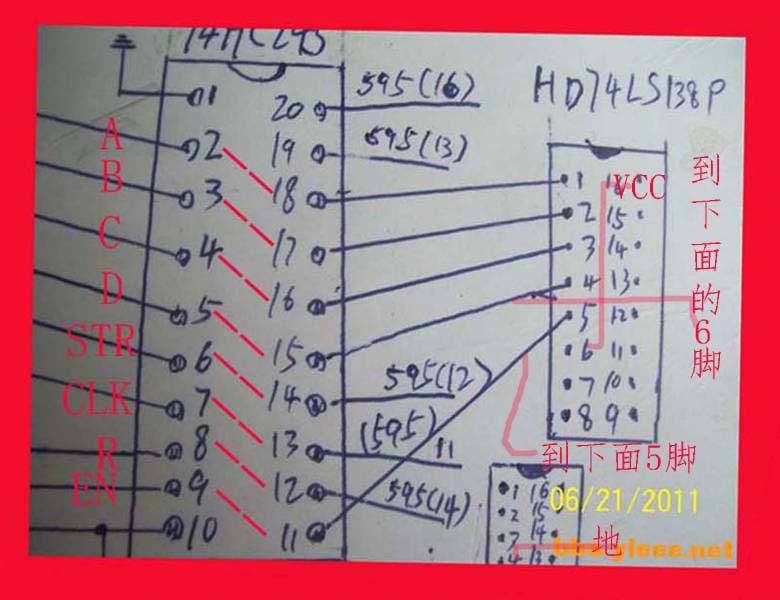 74HC245
HD74LS138P
1
20
595(16)
A
2
19
595(13)
B
3
18
C
4
17
D
5
16
STR
6
15
CLK
7
14
595(12)
R
8
13
(595)
11
EN
9
12
595(14)
10
11
1
16
VCC
2
15
3
14
4
13
5
12
6
11
7
10
8
9
到下面的6脚
到下面5脚
1 16
2 15
3 14
4 13
地
06/21/2011